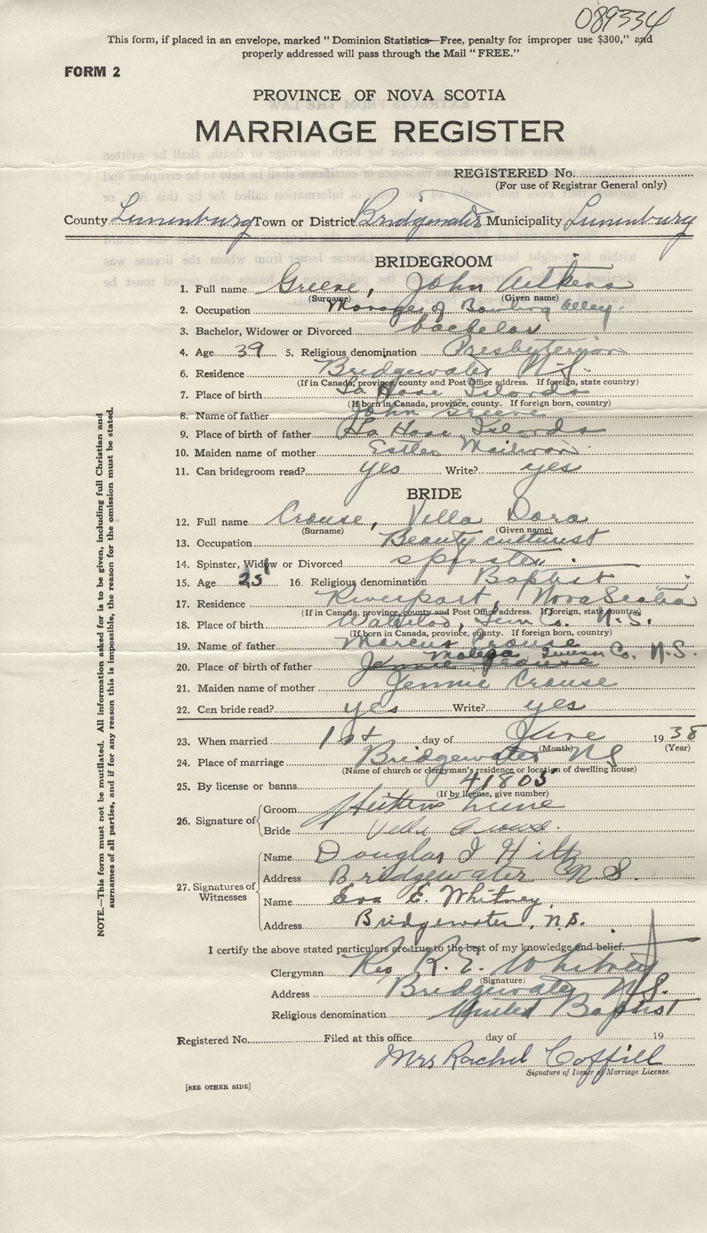 089334
This form, if placed in an envelope, marked "Dominion Statistics—Free, penalty for improper use $300," and
properly addressed will pass through the Mail "FREE."
FORM 2
PROVINCE OF NOVA SCOTIA
MARRIAGE REGISTER
REGISTERED No.
(For use of Registrar General only)
County Lunenburg Town or District Bridgewater Municipality Lunenburg
BRIDEGROOM
1. Full name Greene, John Aitkens
(Surname) (Given name)
2. Occupation Manager of Bowling Alley
3. Bachelor, Widower or Divorced bachelor
4. Age 39 5. Religious denomination Presbyterian
6. Residence Bridgewater N.S.
(If in Canada, province, county and Post Office address. If foreign, state country)
7. Place of birth La Have Islands
(If born in Canada, province, county. If foreign born, country)
8. Name of father John Greene
9. Place of father La Have Islands
10. Maiden name of mother Esther
11. Can bridegroom read? yes Write? yes
BRIDE
12. Full name Crouse, Vella Dora
(Surname) (Given name)
13. Occupation Beauty culturist
14. Spinster, Widow or Divorced spinster
15. Age 25 16. Religious denomination Baptist
17. Residence Riverport, Nova Scotia
(If in Canada, province, county and Post Office address. If foreign, state country)
18. Place of birth Waterloo, Lun Co. N.S.
(If born in Canada, province, county. If foreign born, country)
19. Name of father Marcus Crouse
20. Place of birth of father Jennie Crouse Co. N.S.
21. Maiden name of mother Jennie Crouse
22. Can bride read? yes Write? yes
23. When married 1st day of June 1938
(Month) (Year)
24. Place of marriage Bridgewater NS
(Name of church or clergyman's residence or location of dwelling house)
25. By license or banns 41805
(If by license, give number)
26. Signature of
Groom Aitkens
Bride Vella Crouse
27. Signatures of Witnesses
Name Douglas I Hilt
Address Bridgewater N.S.
Name Eva E. Whitney
Address Bridgewater, N.S.
I certify the above stated particulars are true to the best of my knowledge and belief.
Clergyman Rev R. E. Whitney
(Signature)
Address Bridgewater N.S.
Religious denomination United Baptist
Registered No. Filed at this office day of 19
Mrs Rachel Coffill
Signature of Issuer of Marriage License
[SEE OTHER SIDE]
NOTE.—This form must not be mutilated. All information asked for is to be given, including full Christian and
surnames of all parties, and if for any reason this is impossible, the reason for the omission must be stated.